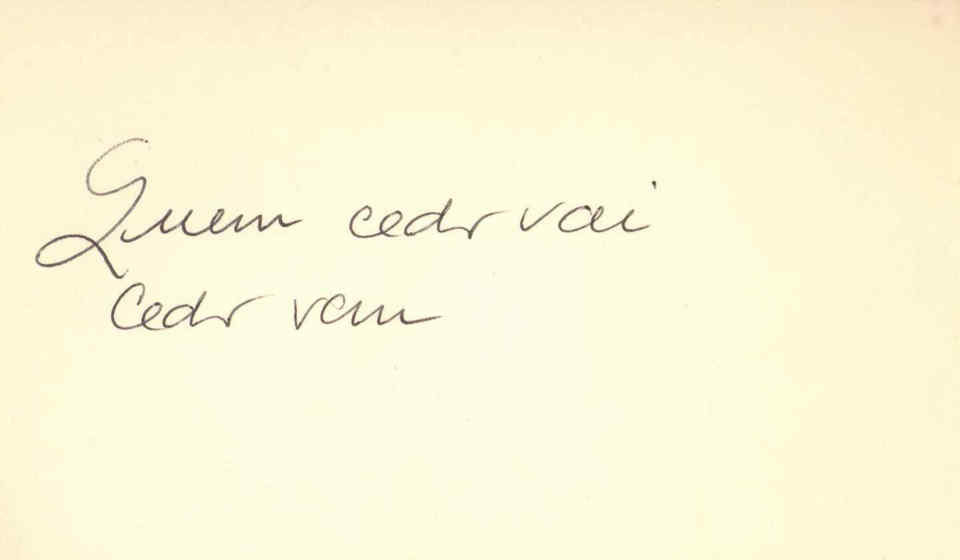 Quem cedo vai
Cedo vem